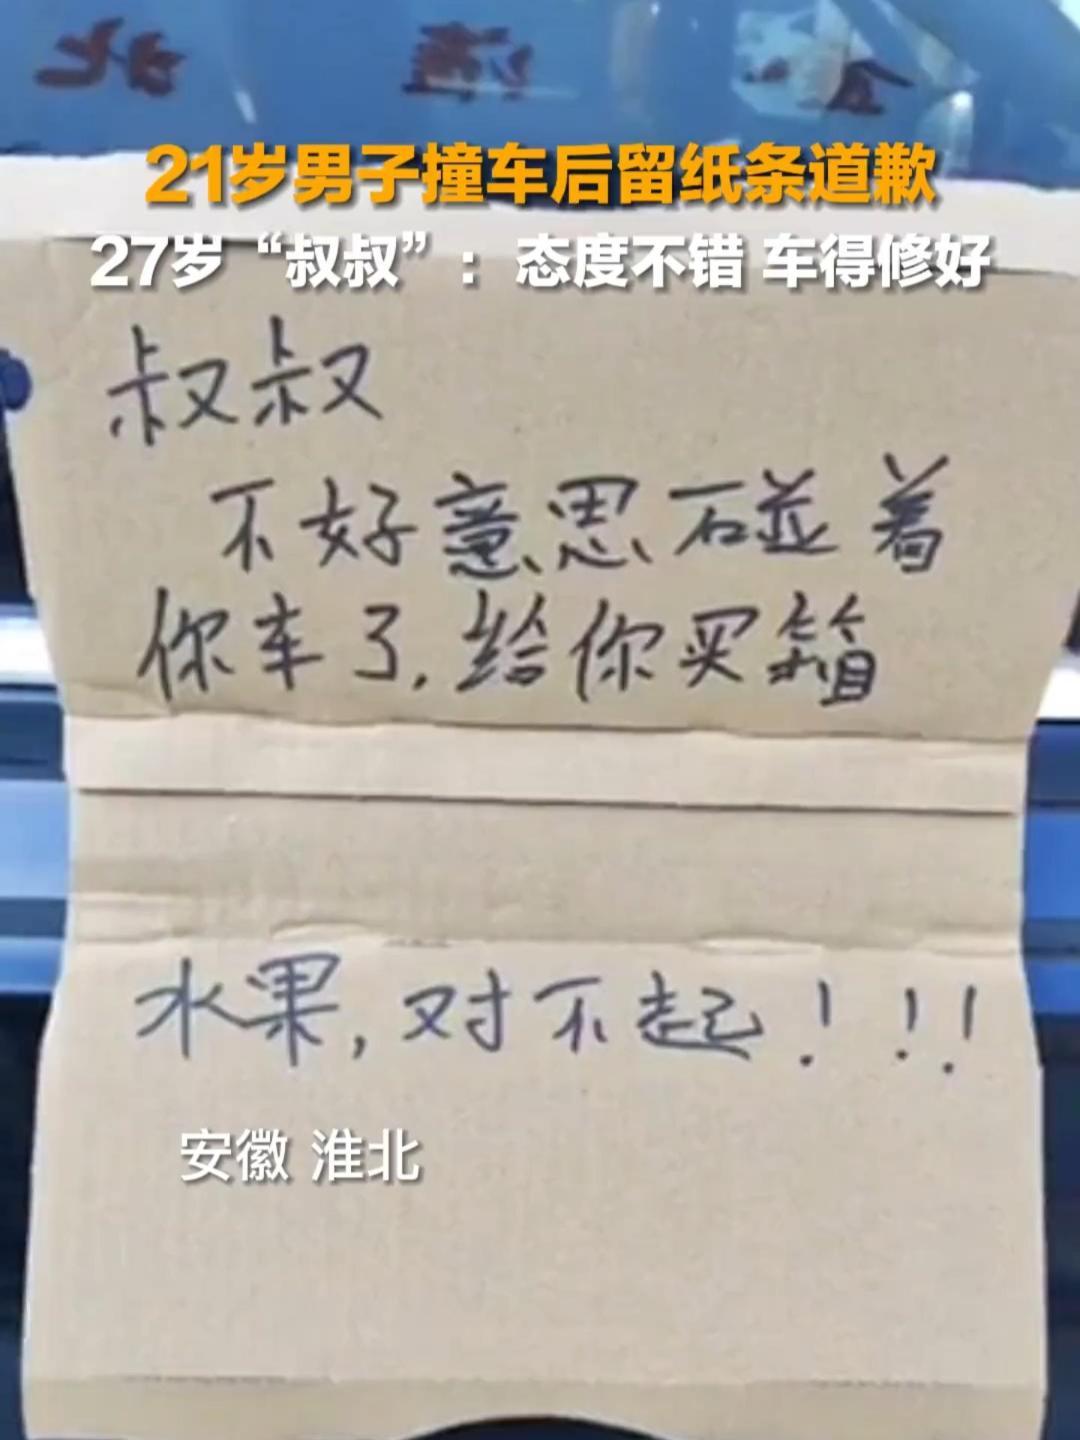 21岁男子撞车后留纸条道歉
27岁“叔叔”：态度不错 车得修好
叔叔
不好意思碰着
你车了,给你买箱
水果,对不起!!!
安徽 淮北